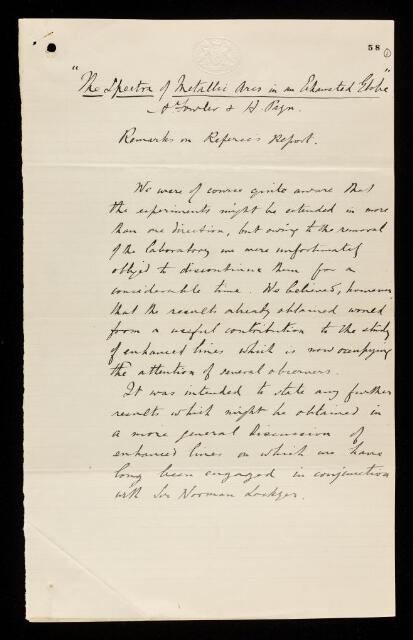 58 1
"The Spectra of Metallic Arcs in an Exhausted Globe"
A. Fowler & H. Payn.
Remarks on Referee's Report.
We were of course quite aware that
the experiments might be extended in more
than one direction, but owing to the removal
of the laboratory we were unfortunately
obliged to discontinue them for a
considerable time. We believed, however,
that the results already obtained would
form a useful contribution to the study
of enhanced lines which is now occupying
the attention of several observers.
It was intended to state any further
results which might be obtained in
a more general discussion of
enhanced lines on which we have
long been engaged in conjunction
with Sir Norman Lockyer.